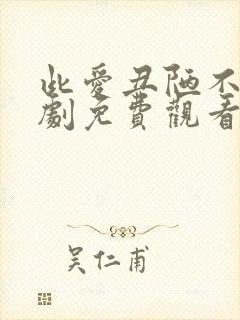 此爱丑陋不
劇免費觀看
吴仁甫